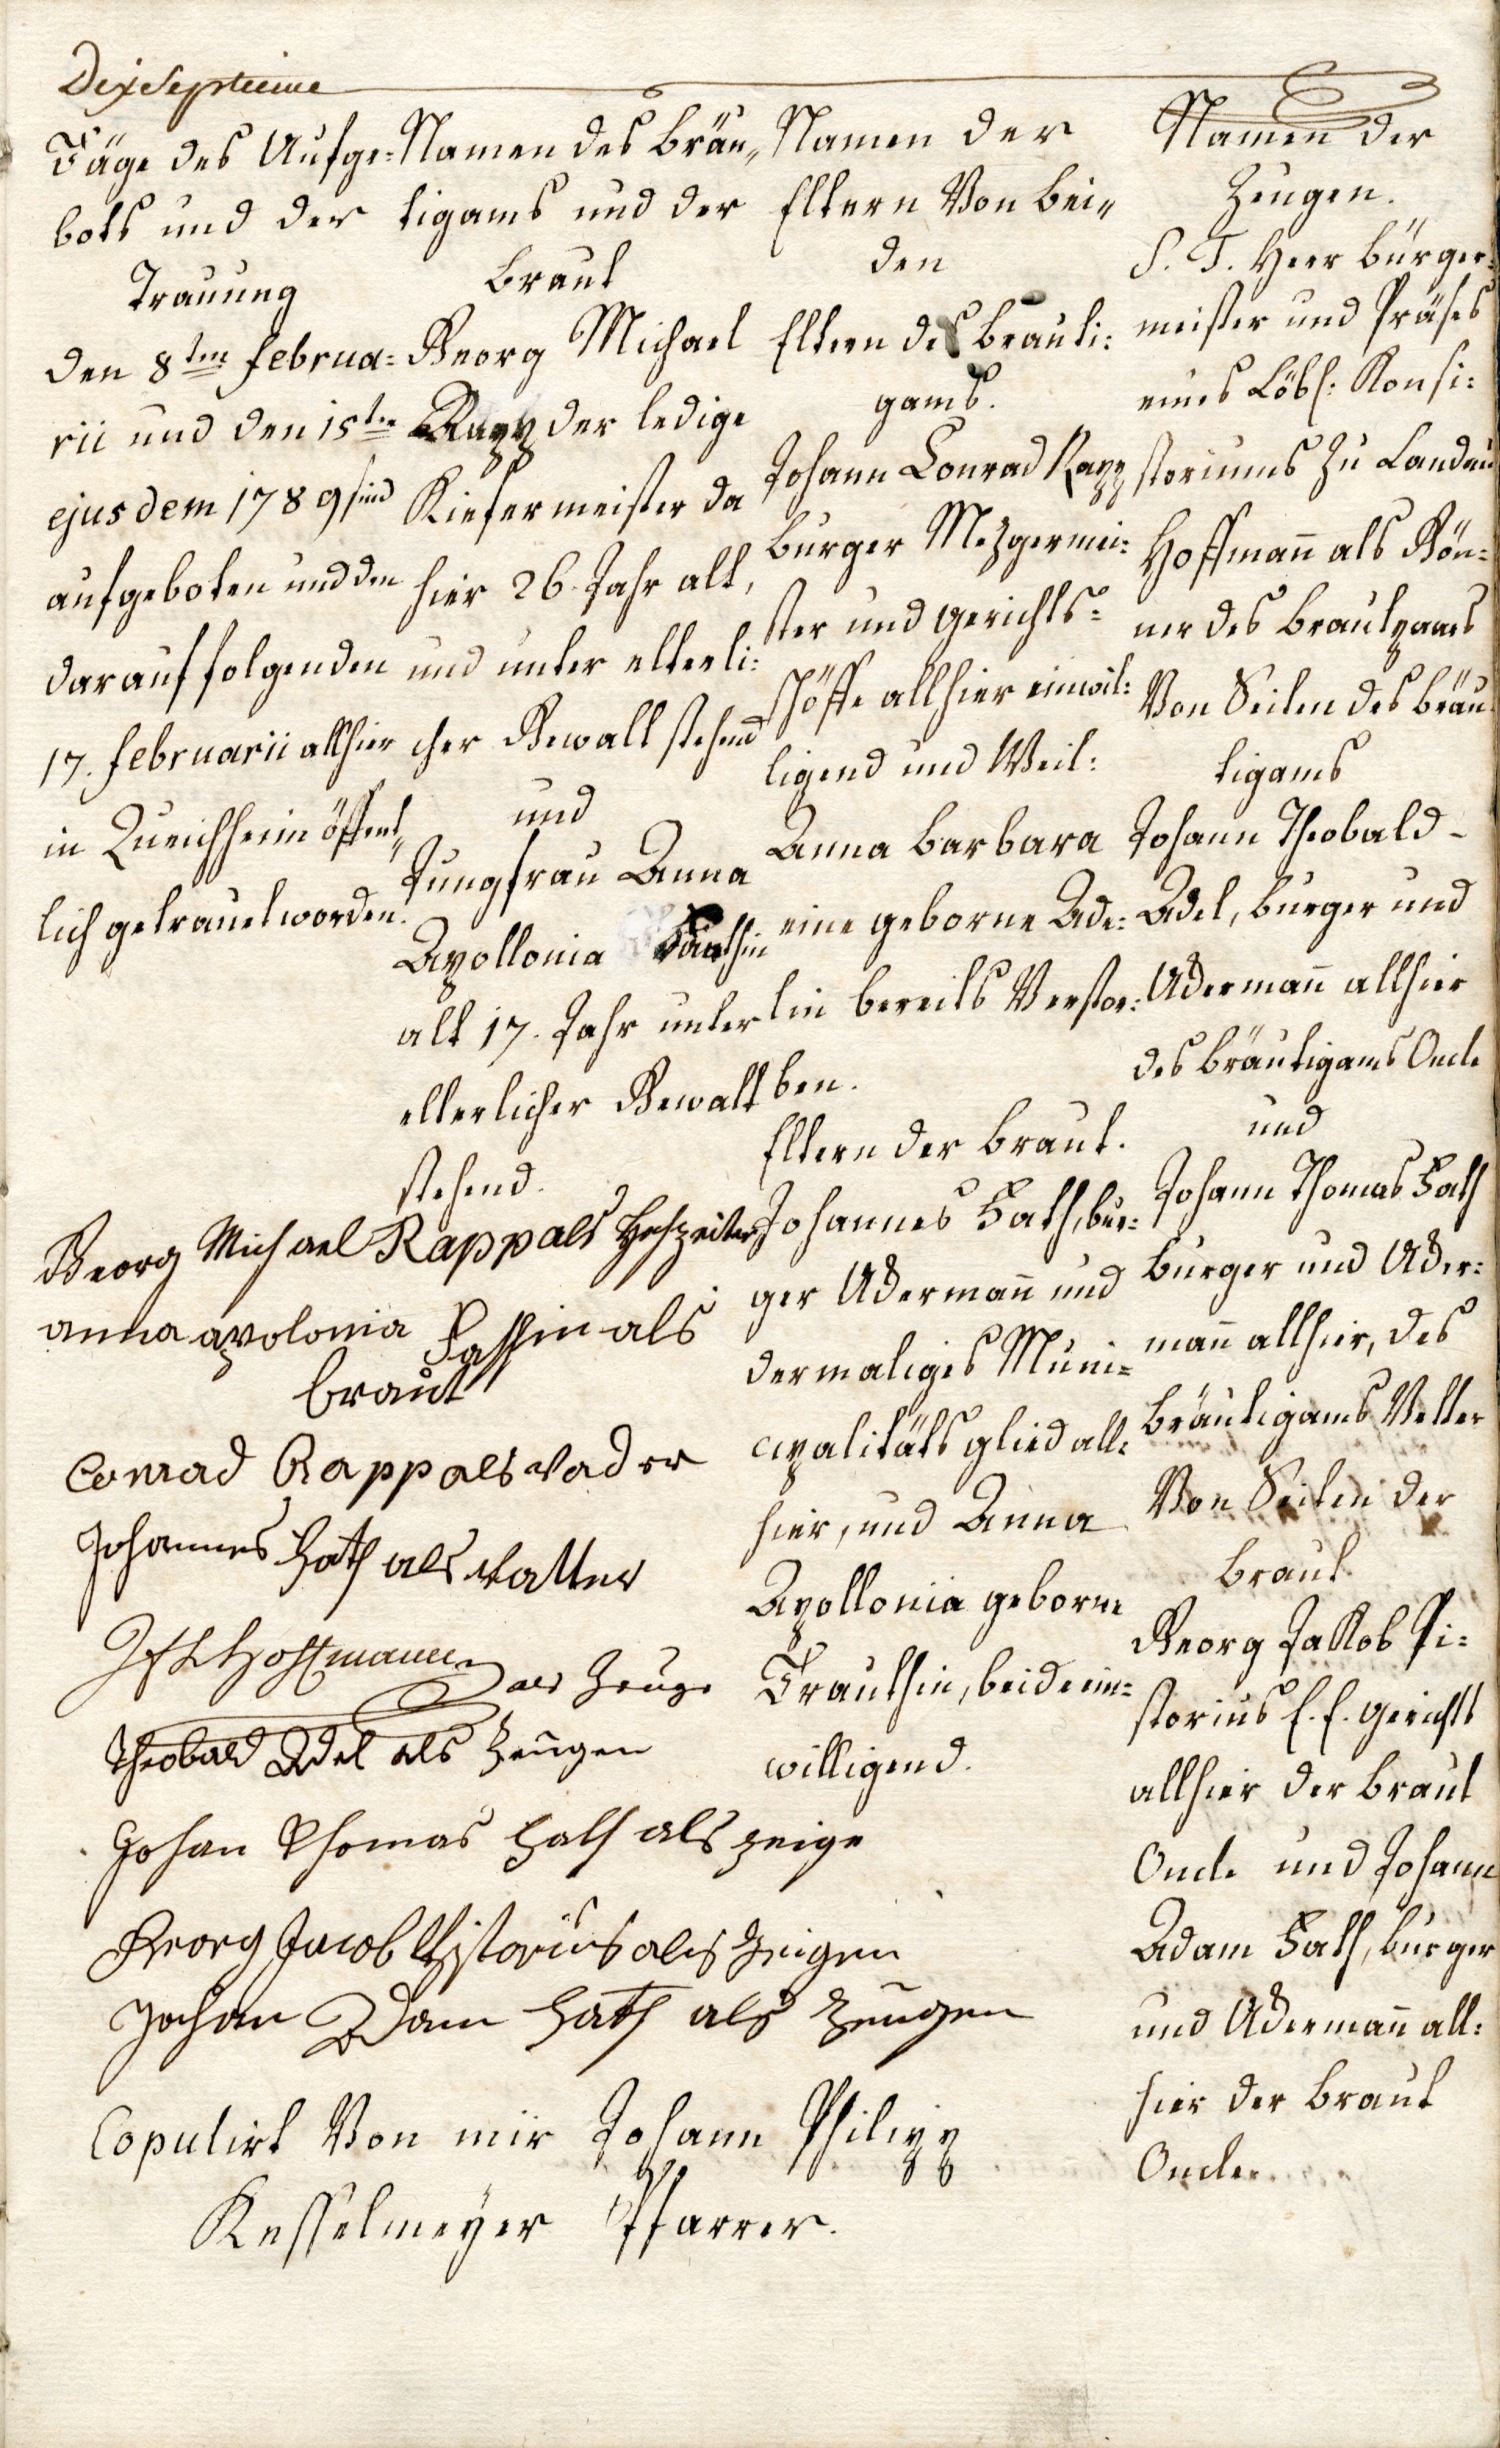 Dixseptieme
Täge des Aufge=
bots und der
Trauung
den 8ten Februa=
rii und den 15ten
ejusdem 1789 sind
aufgeboten und den
darauf folgenden
17. Februarii allhier
in Queichheim öffent„
lich getrauet worden.
Namen des Bräu„
tigams und der
Braut
Georg Michael
Rapp der ledige
Kiefermeister da
hier 26. Jahr alt,
und unter elterli=
cher Gewalt stehend
und
Jungfrau Anna
Apollonia Hathin
alt 17. Jahr unter
elterlicher Gewalt
stehend.
Namen der
Eltern Von bei„
den
Eltern des Bräuti=
gams.
Johann Conrad Rapp
Burger Mezgermei=
ster und Gerichts=
schöffe allhier einwil=
ligend und Weil:
Anna Barbara
eine geborne Ade=
lin bereits Verstor=
ben.
Eltern der Braut.
Johannes Hath, bur=
ger Ackermañ und
dermaliges Muni=
cipalitäts glied all=
hier, und Anna
Apollonia geborne
Trauthin, beide ein=
willigend.
Namen der
Zeugen.
S. T. Herr Bürger=
meister und Präses
eines Löbl: Konsi=
storiums zu Landau
Hoffmañ als Gön=
ner des Brautpaars
Von Seiten des Bräu
tigams
Johann Theobald
Adel, Burger und
Ackermañ allhier
des Bräutigams Oncle
und
Johann Thomas Hath
Burger und Acker=
mañ allhier, des
Bräutigams Vetter
Von Seiten der
Braut
Georg Jakob Pi=
storius E. E. Gerichts
allhier der Braut
Oncle und Johann
Adam Hath, Burger
und Ackermañ all=
hier der Braut
Oncle.
Georg Michael Rapp als Hochzeiter
anna apolonia Hathin als
braut
Conrad Rapp als vader
Johannes Hath als vatter
Hoffmann als Zeuge
Theobald Adel als Zeugen
Johan Thomas Hath als zeige
Georg Jacob Pistorius als Zeigen
Johan Adam Hath als Zeugen
Copulirt Von mir Johann Philipp
Kesselmeyer Pfarrer.